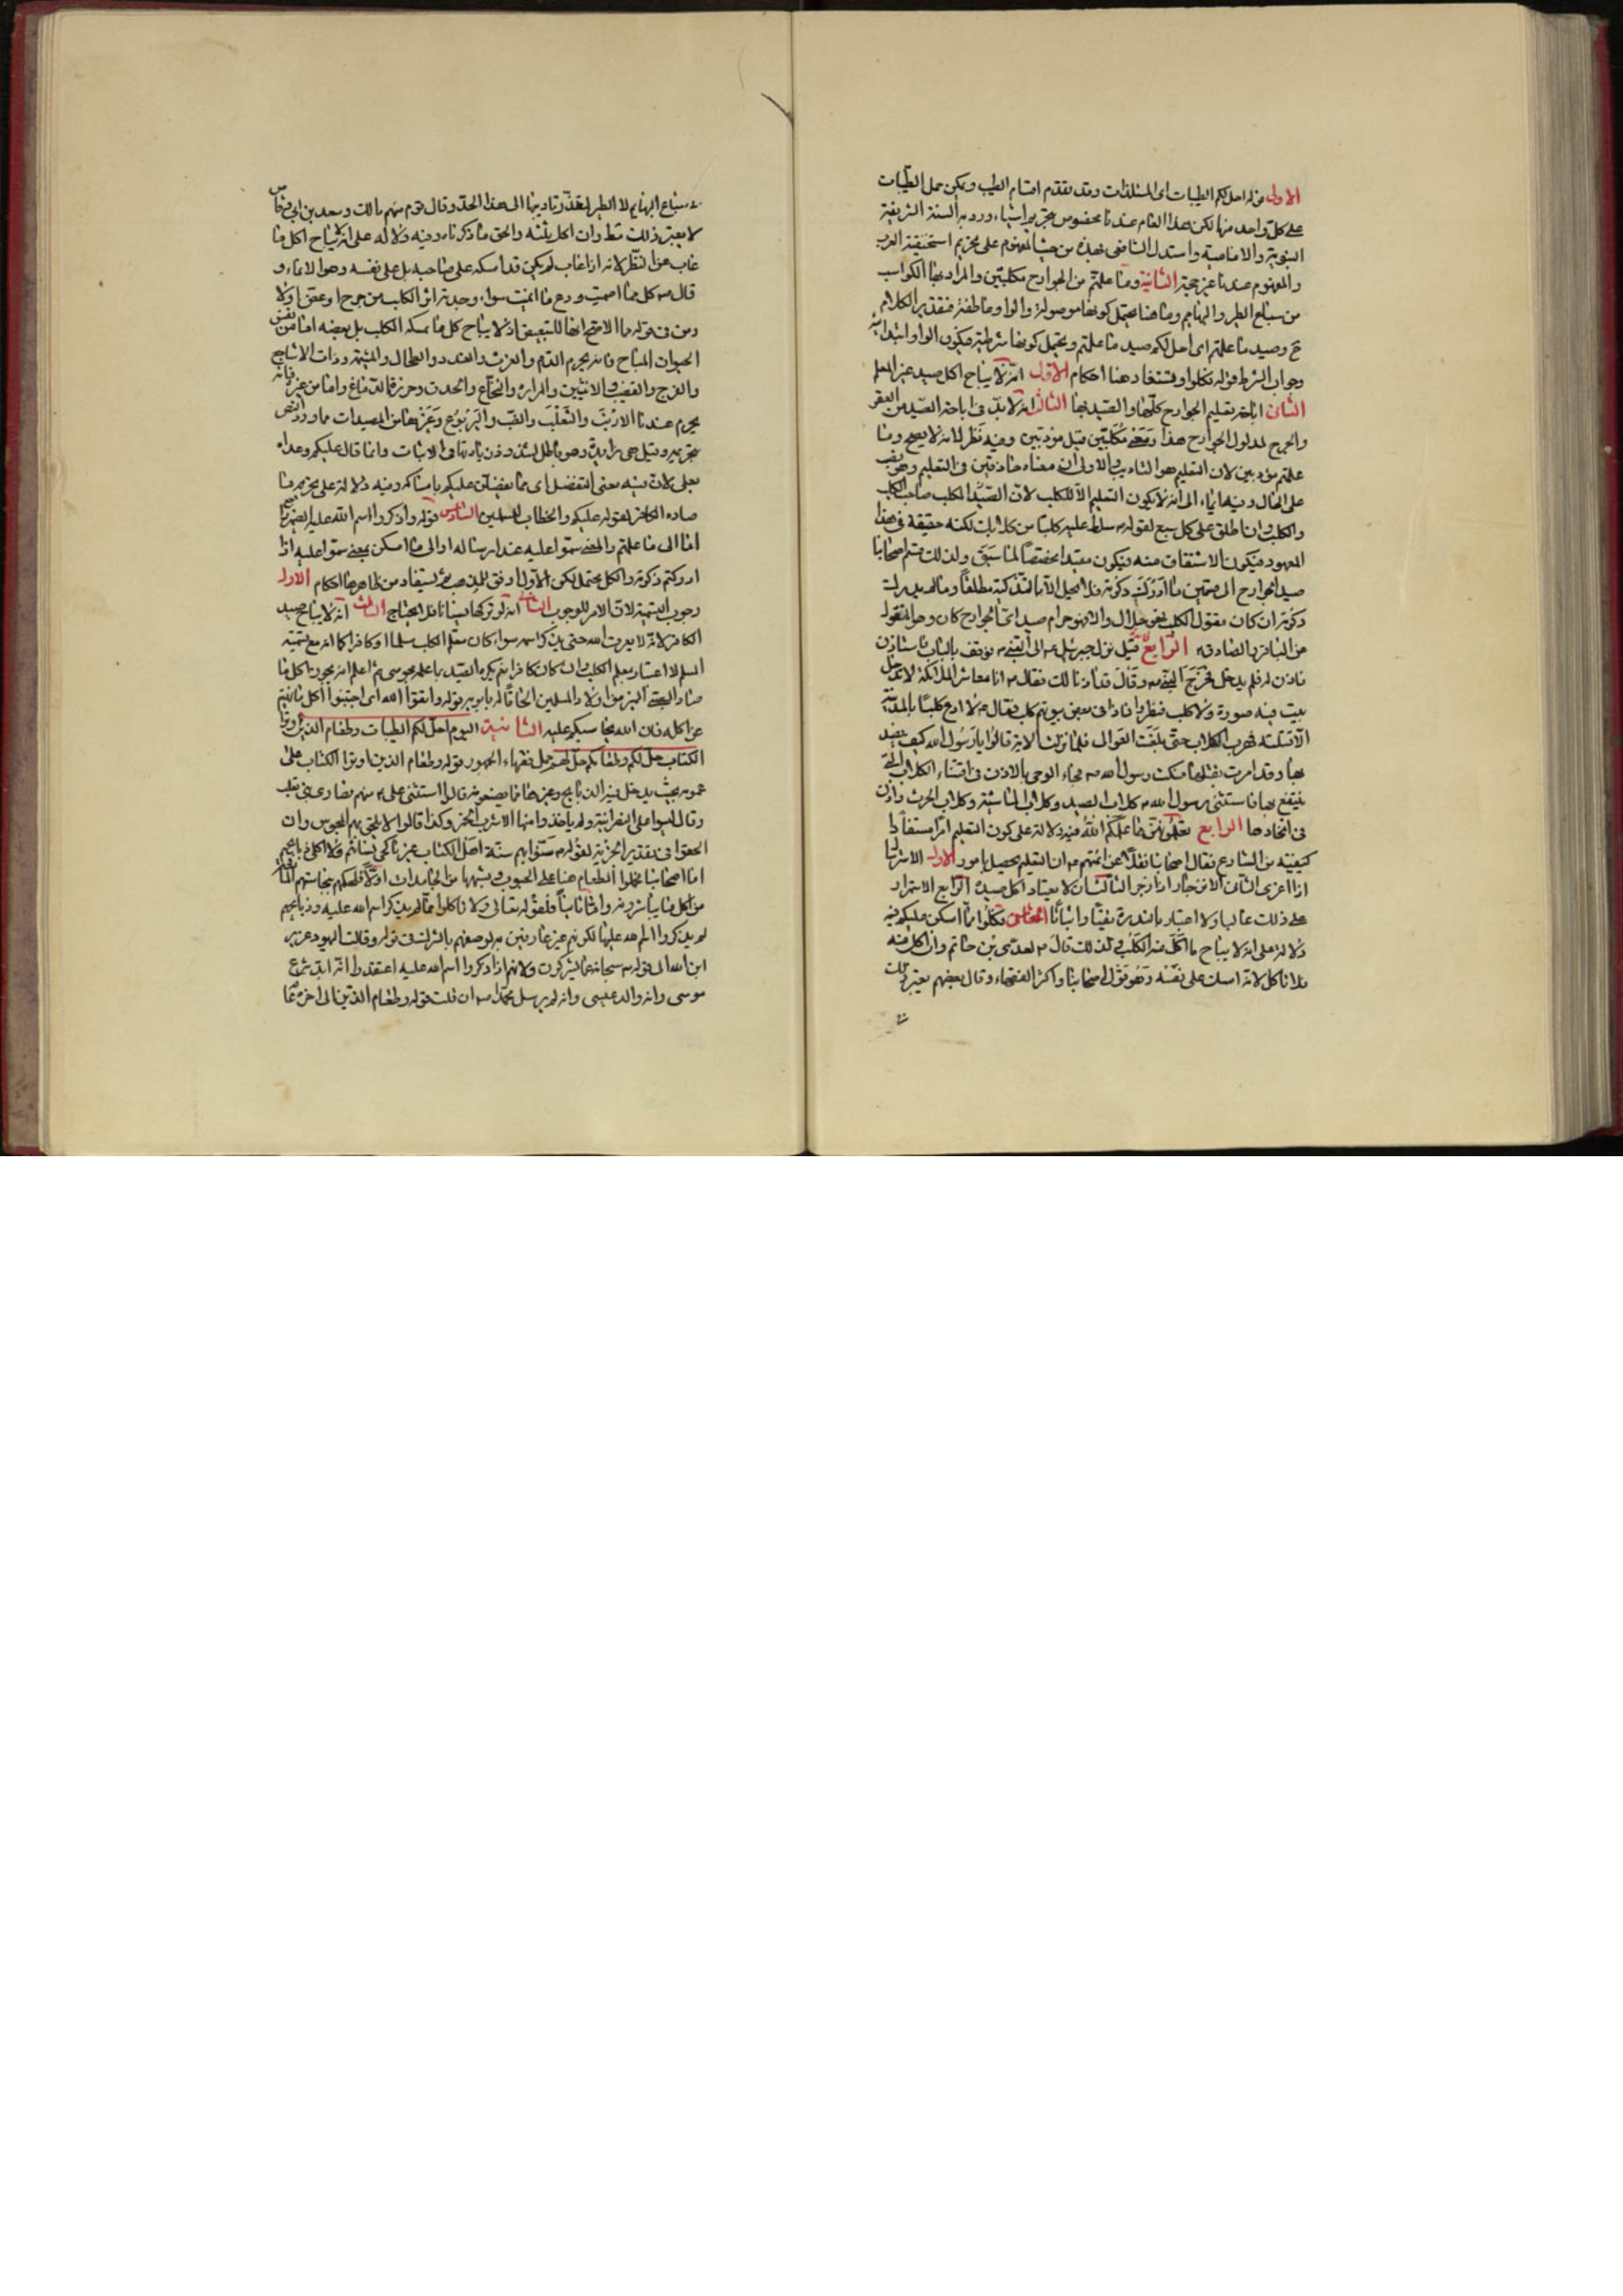 الاولى قوله احل لكم الطيبات اى المستلذات وقد تقدم اقسام الطيب ويمكن حمل الطيبات
على كل واحد منها لكن هذا العام عندنا مخصوص بتحريم اشياء ورد به السنة الشريفة
النبوية والامامية واستدل الشافعى بهذه من حيث المفهوم على تحريم استخبثته العرب
والمفهوم عندنا غير حجة الثانية وما علمتم من الجوارح مكلبين والمراد بها الكواسب
من سباع الطير والبهايم وما هنا يحتمل كونها موصولة والواو عاطفة فتقدير الكلام
ح وصيد ما علمتم اى احل لكم صيد ما علمتم ويحتمل كونها شرطية فيكون الواو ابتدائية
وجواب الشرط قوله فكلوا ويستفاد هنا احكام الاول انه لا يباح اكل صيد غير المعلم
الثانى اباحة تعليم الجوارح كلها والصيد بها الثالث انه لا بد فى اباحة الصيد من العقر
والجرح لمدلول الجوارح هذا ومعنى مكلبين قيل مؤدبين وفيه نظر لانه لا يصح وما
علمتم مؤدبين لان التعليم هو التاديب والاولى ان معناه حاذقين فى التعليم وهو نصب
على الحال وفيه ايماء الى انه لا يكون التعليم الا للكلب لان المكلب صاحب الكلب
والكلب وان اطلق على كل سبع لقوله ص سلط عليه كلبا من كلابك لكنه حقيقة فى هذا
المعهود فيكون الاشتقاق منه فيكون مقيدا مخصصا لما سبق ولذلك قسم اصحابنا
صيد الجوارح الى قسمين ما ادركت ذكوته فلا يحل الا بالتذكية مطلقا وما لم يدرك
ذكوته ان كان مقتول الكلب فهو حلال والا فهو حرام صيد اى الجوارح كان وهو المنقول
عن الباقر والصادق ع الرابع قيل نزل جبرئيل ع الى النبى ص فوقف بالباب فاستاذن
فاذن له فلم يدخل فخرج النبى ص وقال قد اذنا لك فقال ع انا معاشر الملائكة لا ندخل
بيت فيه صورة ولا كلب فنظروا فاذا فى بعض بيوتهم كلب فقال ص لا ادع كلبا بالمدينة
الا قتلته فهرب الكلاب حتى بلغت العوالى فلما نزلت الاية قالوا يا رسول الله كيف نصيد
بها وقد امرت بقتلها فسكت رسول الله ص فجاء الوحى بالاذن فى اقتناء الكلاب التى
ينتفع بها فاستثنى رسول الله ص كلاب الصيد وكلاب الماشية وكلاب الحرث واذن
فى اتخاذها الرابع تعلمونهن مما علمكم الله فيه دلالة على كون التعليم امرا مستفادا
كيفيته من الشارع فقال اصحابنا نقلا عن ائمتهم ع ان التعليم يحصل بامور الاول الاسترسال
اذا اغرى الثانى الانزجار اذا زجر الثالث ان لا يعتاد اكل صيده الرابع الاستمرار
على ذلك غالبا ولا اعتبار بالندرة نفيا واثباتا الخامس فكلوا مما امسكن عليكم فيه
دلالة على انه لا يباح ما اكل منه الكلب ولذلك قال ص لعدى بن حاتم وان اكل منه
فلا تاكل لانه امسك على نفسه وهو قول اصحابنا واكثر الفقهاء وقال بعضهم يعتبر ذلك
فى سباع البهايم لا الطير لتعذر تاديبها الى هذا الحد وقال قوم منهم مالك وسعد بن ابى وقاص
لا يعتبر ذلك قط وان اكل ثلثه والحق ما ذكرناه وفيه دلالة على انه لا يباح اكل ما
غاب عن النظر لانه اذا غاب لم يكن قد امسكه على صاحبه بل على نفسه وهو الايماء و
قال ص كل مما اصميت ودع ما انميت سواء وجد فيه اثر الكلب من جرح او عقر او لا
ومن فى قوله مما الاصح انها للتبعيض اذ لا يباح كل ما يمسكه الكلب بل بعضه اما من نفس
الحيوان المباح فانه يحرم الدم والفرث والغدد والطحال والمثانة وذات الاشاجع
والفرج والقضيب والانثيين والمرارة والنخاع والحدق وخرزة الدماغ واما من غيره فانه
يحرم عندنا الارنب والثعلب والضب واليربوع وغيرها من المصيدات مما ورد النص
بتحريمه وقيل هى زايدة وهو باطل لشذوذ زيادتها فى الاثبات وانما قال عليكم وعداه
بعلى لان فيه معنى التفضل اى مما تفضلن عليكم بامساكه وفيه دلالة على تحريم ما
صاده الكافر لقوله عليكم والخطاب للمسلمين السادس قوله واذكروا اسم الله عليه الضمير راجع
اما الى ما علمتم والمعنى سموا عليه عند ارساله او الى ما امسكن بمعنى سموا عليه اذا
ادركتم ذكوته والكل محتمل لكن الاول اوفق للمذهب ثم يستفاد من ظاهرها احكام الاول
وجوب التسمية لان الامر للوجوب الثانى انه لو تركها نسيانا فلا جناح الثالث انه لا يباح صيد
الكافر لانه لا يعرف الله حتى يذكر اسمه سواء كان معلم الكلب مسلما او كافرا كما انه مع تسمية
المسلم لا اعتبار بمعلم الكلب وان كان كافرا نعم يكره الصيد بما علمه مجوسى ثم اعلم انه يجوز اكل ما
صاد الصبى المميز من اولاد المسلمين الحاقا له بابويه قوله واتقوا الله اى اجتنبوا اكل ما نهيتم
عن اكله فان الله يحاسبكم عليه الثانية اليوم احل لكم الطيبات وطعام الذين اوتوا
الكتاب حل لكم وطعامكم حل لهم حمل فقهاء الجمهور قوله وطعام الذين اوتوا الكتاب على
عمومه بحيث يدخل فيه الذبايح وغيرها مما يصنعونه قالوا استثنى على ع منهم نصارى بنى تغلب
وقال ليسوا على النصرانية ولم ياخذوا منها الا شرب الخمر وكذا قالوا لا يلحق بهم المجوس وان
الحقوا فى تقدير الجزية لقوله ص سنوا بهم سنة اهل الكتاب غير ناكحى نسائهم ولا اكلى ذبايحهم
اما اصحابنا فحملوا الطعام هنا على الحبوب وشبهها من الجامدات اولا فلحكمهم بنجاستهم المانعة
من اكل ما يباشرونه واما ثانيا فلقوله تعالى ولا تاكلوا مما لم يذكر اسم الله عليه وذبايحهم
لم يذكروا اسم الله عليها لكونهم غير عارفين به لوصفهم بالشرك فى قوله وقالت اليهود عزير
ابن الله الى قوله سبحانه عما يشركون ولانهم اذا ذكروا اسم الله عليه اعتقدوا انه ابد شرع
موسى وانه والد عيسى وانه لم يرسل محمدا ص ان قلت قوله وطعام الذين الى اخره عام